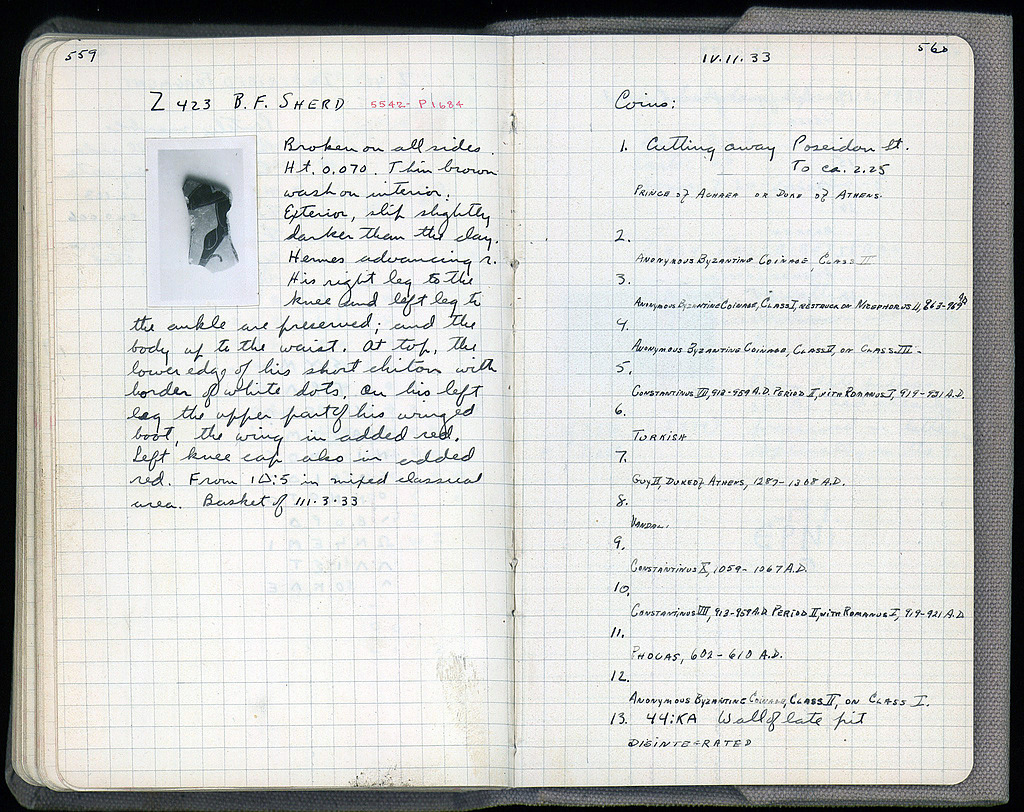 559
Z 423 B.F. SHERD 5542- P1684
Broken on all sides.
Ht. 0.070. Thin brown
wash on interior.
Exterior, slip slightly
darker than the clay.
Hermes advancing r.
His right leg to the
knee and left leg to
the ankle are preserved; and the
body up to the waist. At top, the
lower edge of his short chiton with
border of white dots. On his left
leg the upper part of his winged
boot, the wing in added red.
Left knee cap also in added
red. From 10:5 in mixed classical
area. Basket of III.3.33
560
IV.11.33
Coins:
1. Cutting away Poseidon St.
To ca. 2.25
PRINCE of ACHAEA OR DUKE of ATHENS.
2.
ANONYMOUS BYZANTINE COINAGE, CLASS II
3.
ANONYMOUS BYZANTINE COINAGE, CLASS I, RESTRUCK ON NICEPHORUS II, 963-969
4.
ANONYMOUS BYZANTINE COINAGE, CLASS II, ON CLASS III.
5.
CONSTANTINUS VII, 913-959 A.D. PERIOD II, WITH ROMANUS I, 919-921 A.D.
6.
TURKISH
7.
GUY II, DUKE of ATHENS, 1287-1308 A.D.
8.
VANDAL.
9.
CONSTANTINUS X, 1059-1067 A.D.
10.
CONSTANTINUS VII, 913-959 A.D. PERIOD II, WITH ROMANUS I, 919-921 A.D.
11.
PHOCAS, 602-610 A.D.
12.
ANONYMOUS BYZANTINE COINAGE, CLASS II, ON CLASS I.
13. 44:KA Wall of late pit
DISINTEGRATED